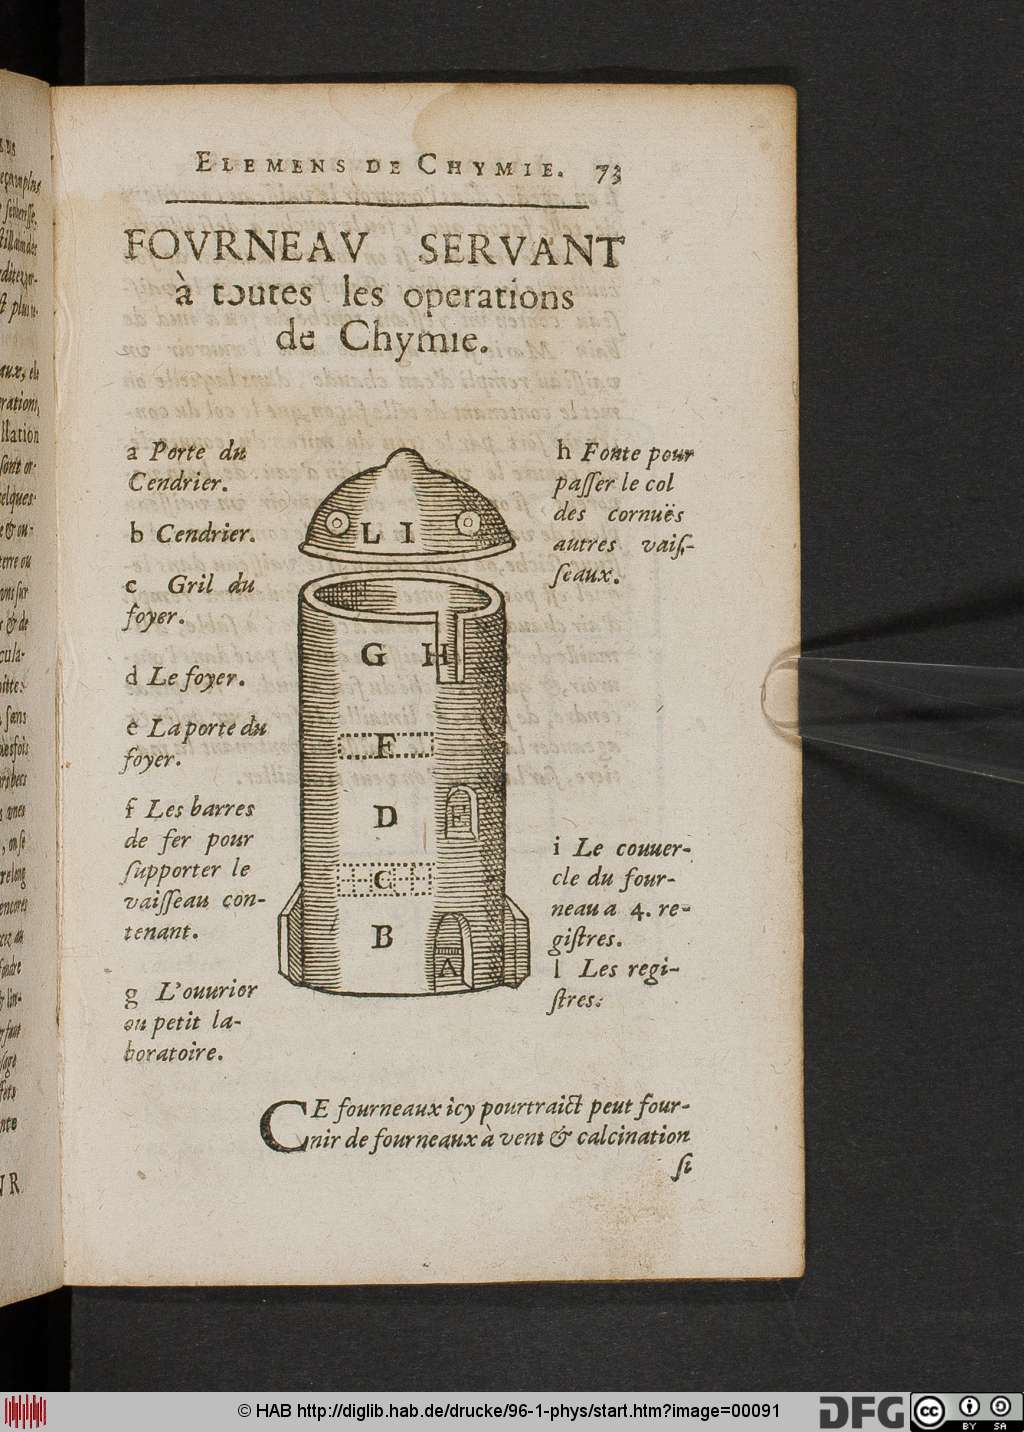 ELEMENS DE CHYMIE. 73
FOVRNEAV SERVANT
à toutes les operations
de Chymie.
a Porte du
Cendrier.
b Cendrier.
c Gril du
foyer.
d Le foyer.
e La porte du
foyer.
f Les barres
de fer pour
supporter le
vaisseau con-
tenant.
g L'ouurier
ou petit la-
boratoire.
L I
G H
F
D
E
C
B
A
h Fonte pour
passer le col
des cornuës
autres vais-
seaux.
i Le couuer-
cle du four-
neau a 4. re-
gistres.
l Les regi-
stres.
CE fourneaux icy pourtraict peut four-
nir de fourneaux à vent & calcination
si
© HAB http://diglib.hab.de/drucke/96-1-phys/start.htm?image=00091
DFG
cc BY SA